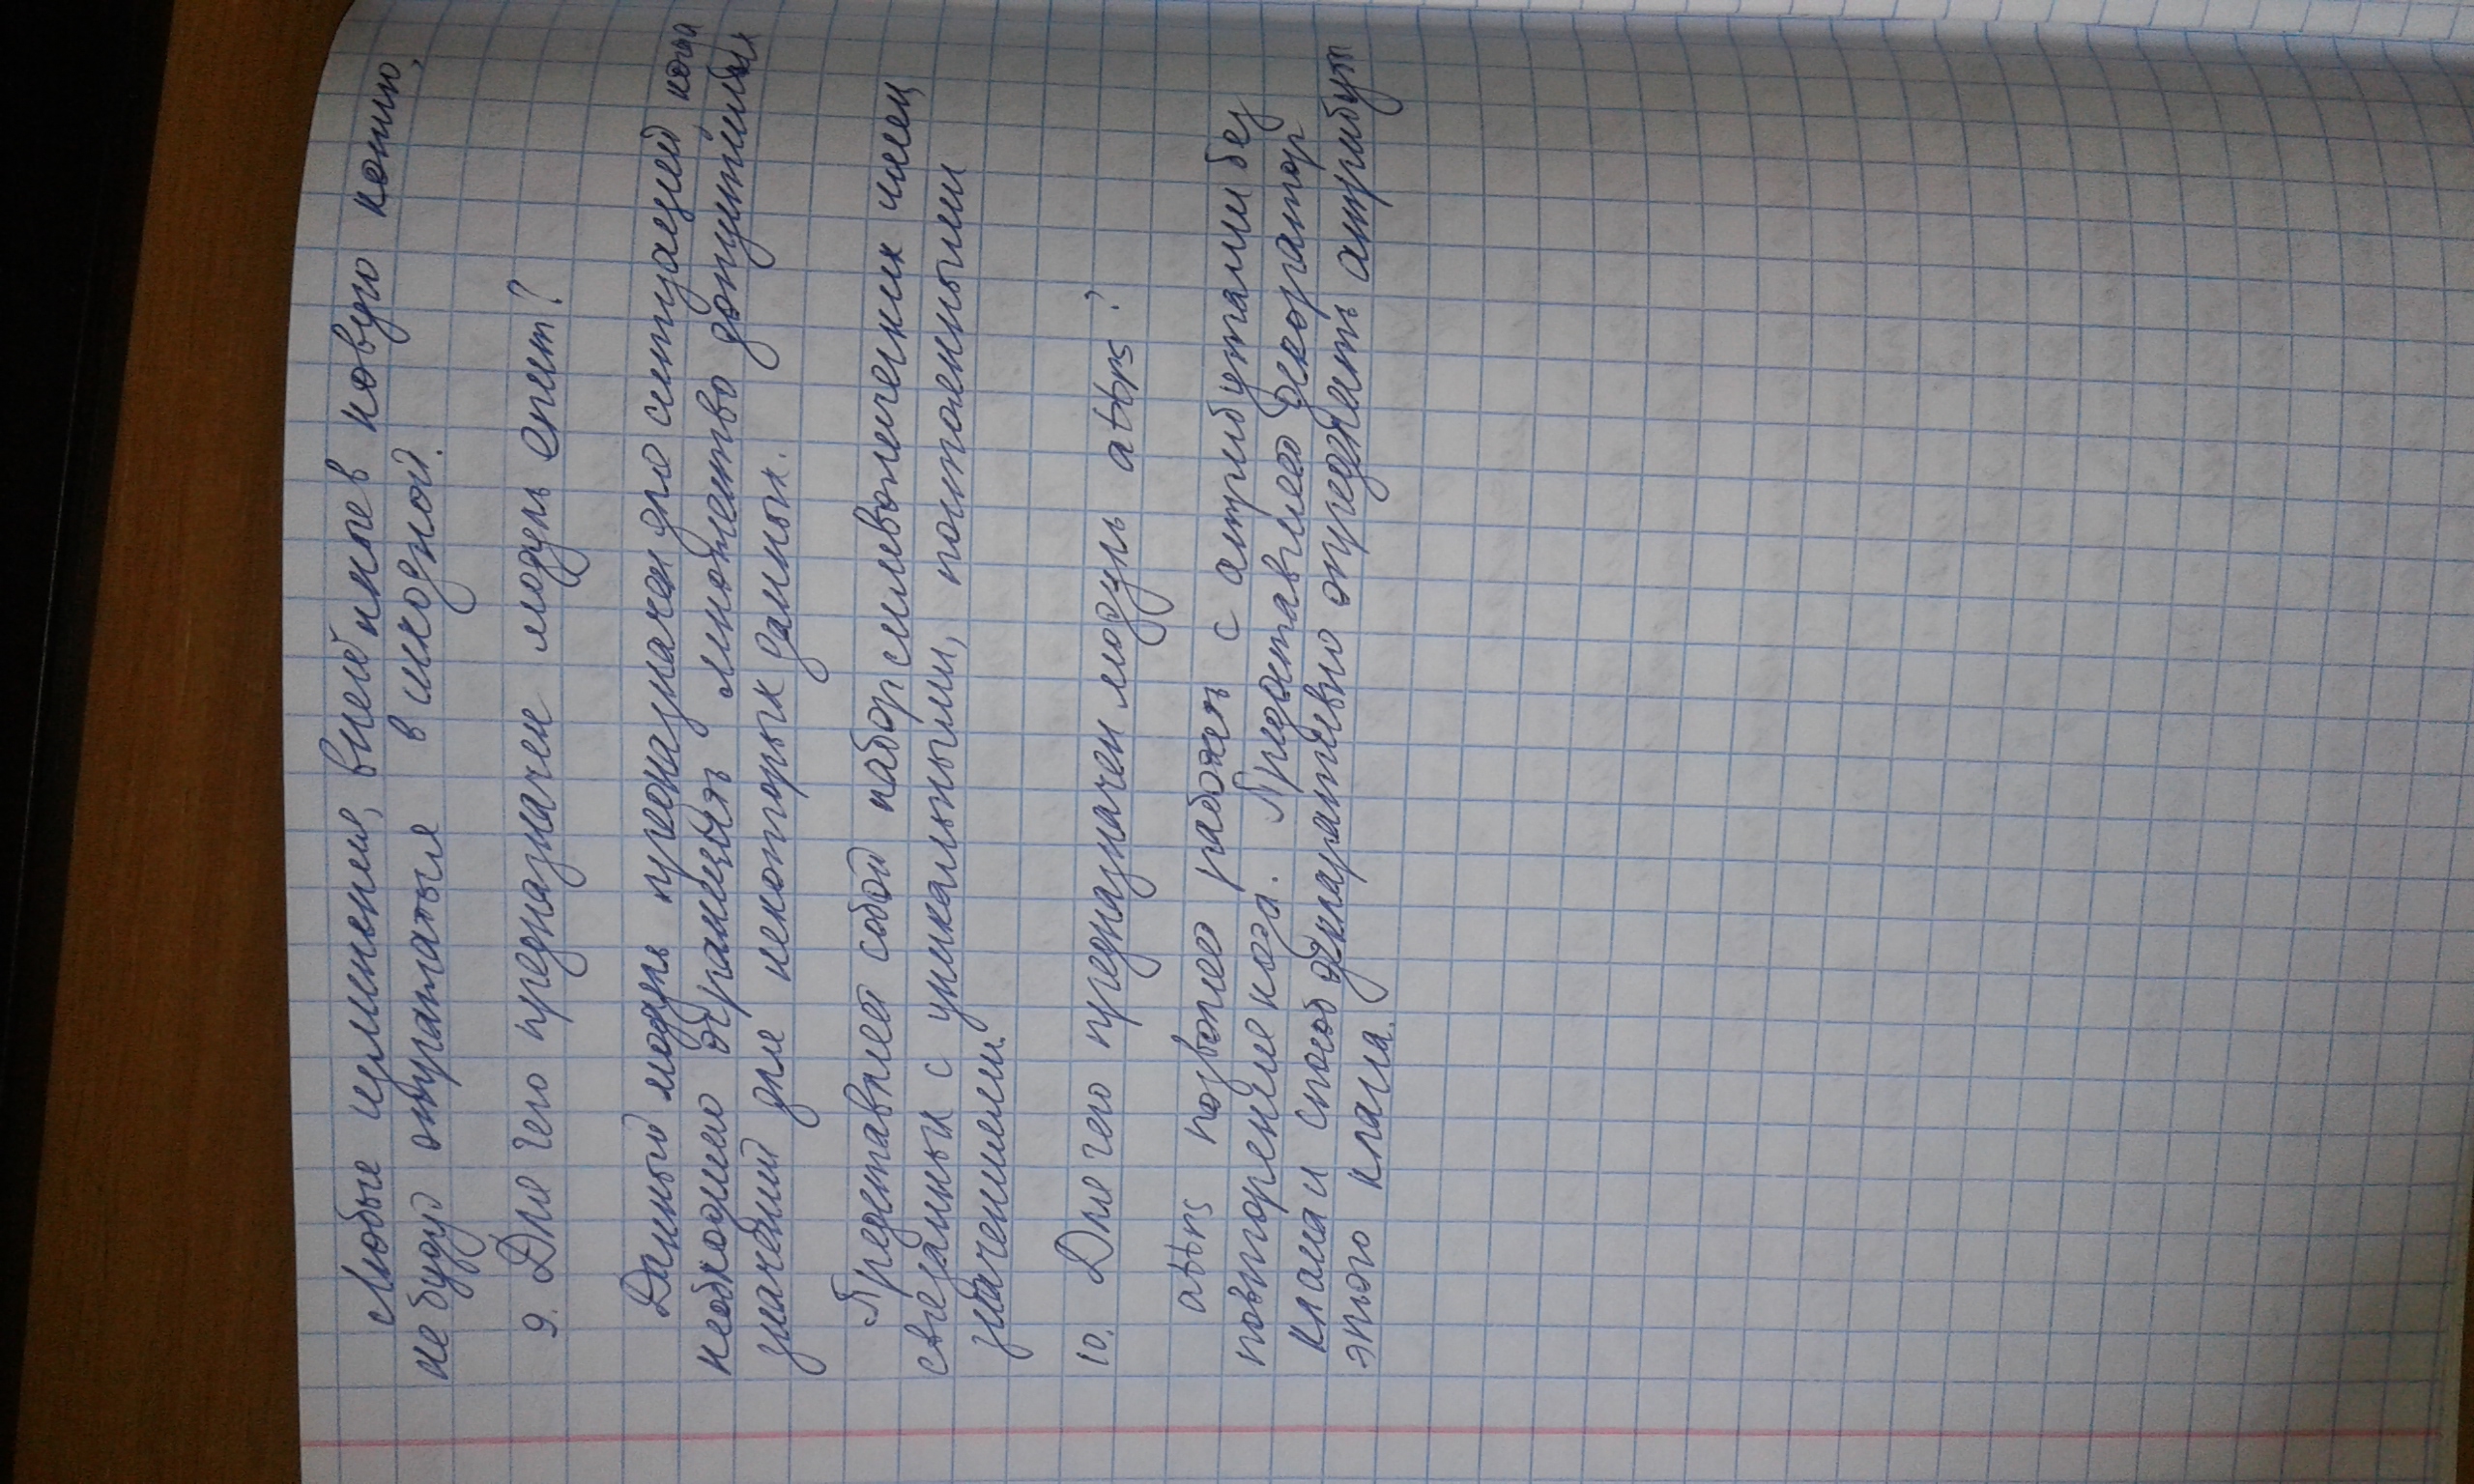 Любые изменения, внесённые в новую копию,
не будут отражаться в исходной.
9. Для чего предназначен модуль enum?
Данный модуль предназначен для ситуаций, когда
необходимо ограничить множество допустимых
значений для некоторых данных.
Представляет собой набор символических имен,
связанных с уникальными, постоянными
значениями.
10. Для чего предназначен модуль attrs?
attrs позволяет работать с атрибутами без
повторения кода. Предоставляет декоратор
класса и способ декларативно определить атрибуты
этого класса.